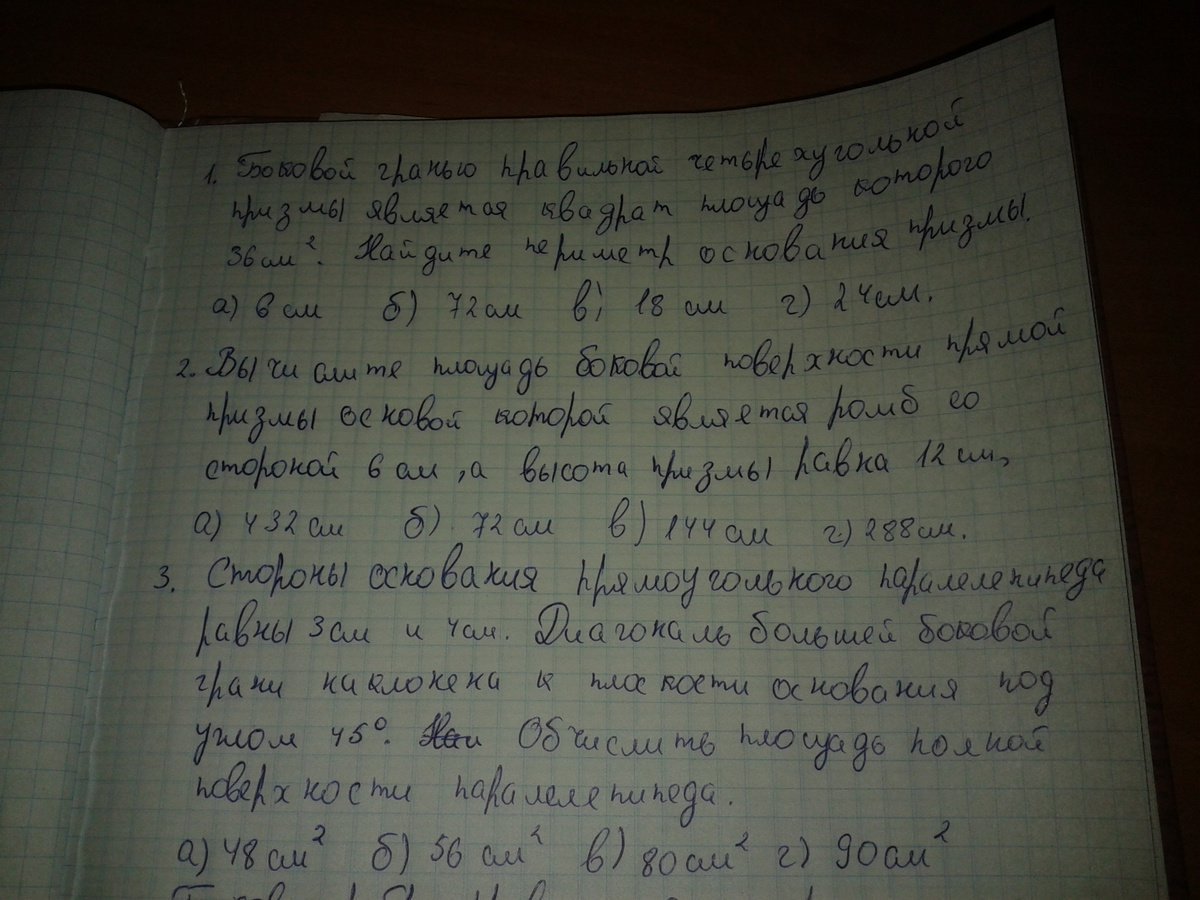 1. Боковой гранью правильной четырехугольной
призмы является квадрат площадь которого
36 см². Найдите периметр основания призмы.
а) 6 см б) 72 см в) 18 см г) 24 см.
2. Вычислите площадь боковой поверхности прямой
призмы основой которой является ромб со
стороной 6 см, а высота призмы равна 12 см,
а) 432 см б) 72 см в) 144 см г) 288 см.
3. Стороны основания прямоугольного паралелепипеда
равны 3 см и 4 см. Диагональ большей боковой
грани наклонена к плоскости основания под
углом 45°. Обчислить площадь полной
поверхности паралелепипеда.
а) 48 см² б) 56 см² в) 80 см² г) 90 см²